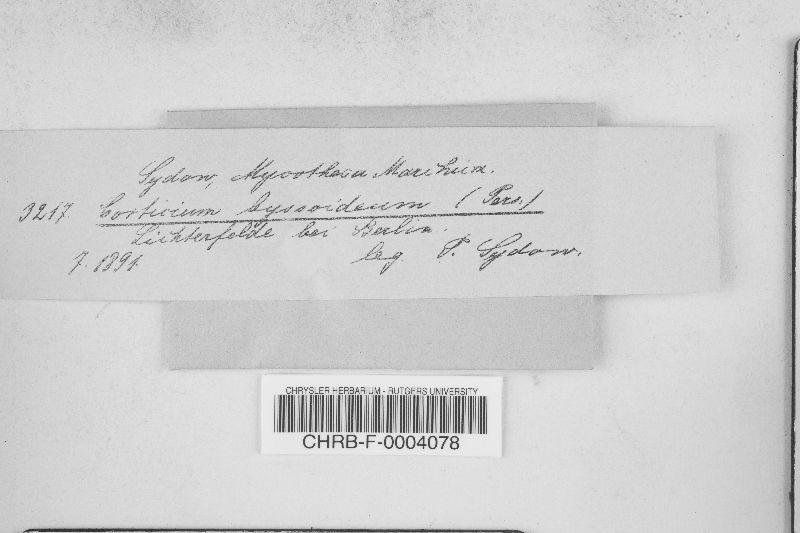 Sydow, Mycotheca Marchica.
3217. Corticium byssoideum (Pers.)
Lichterfelde bei Berlin.
7. 1891. leg. P. Sydow.
CHRYSLER HERBARIUM - RUTGERS UNIVERSITY
CHRB-F-0004078